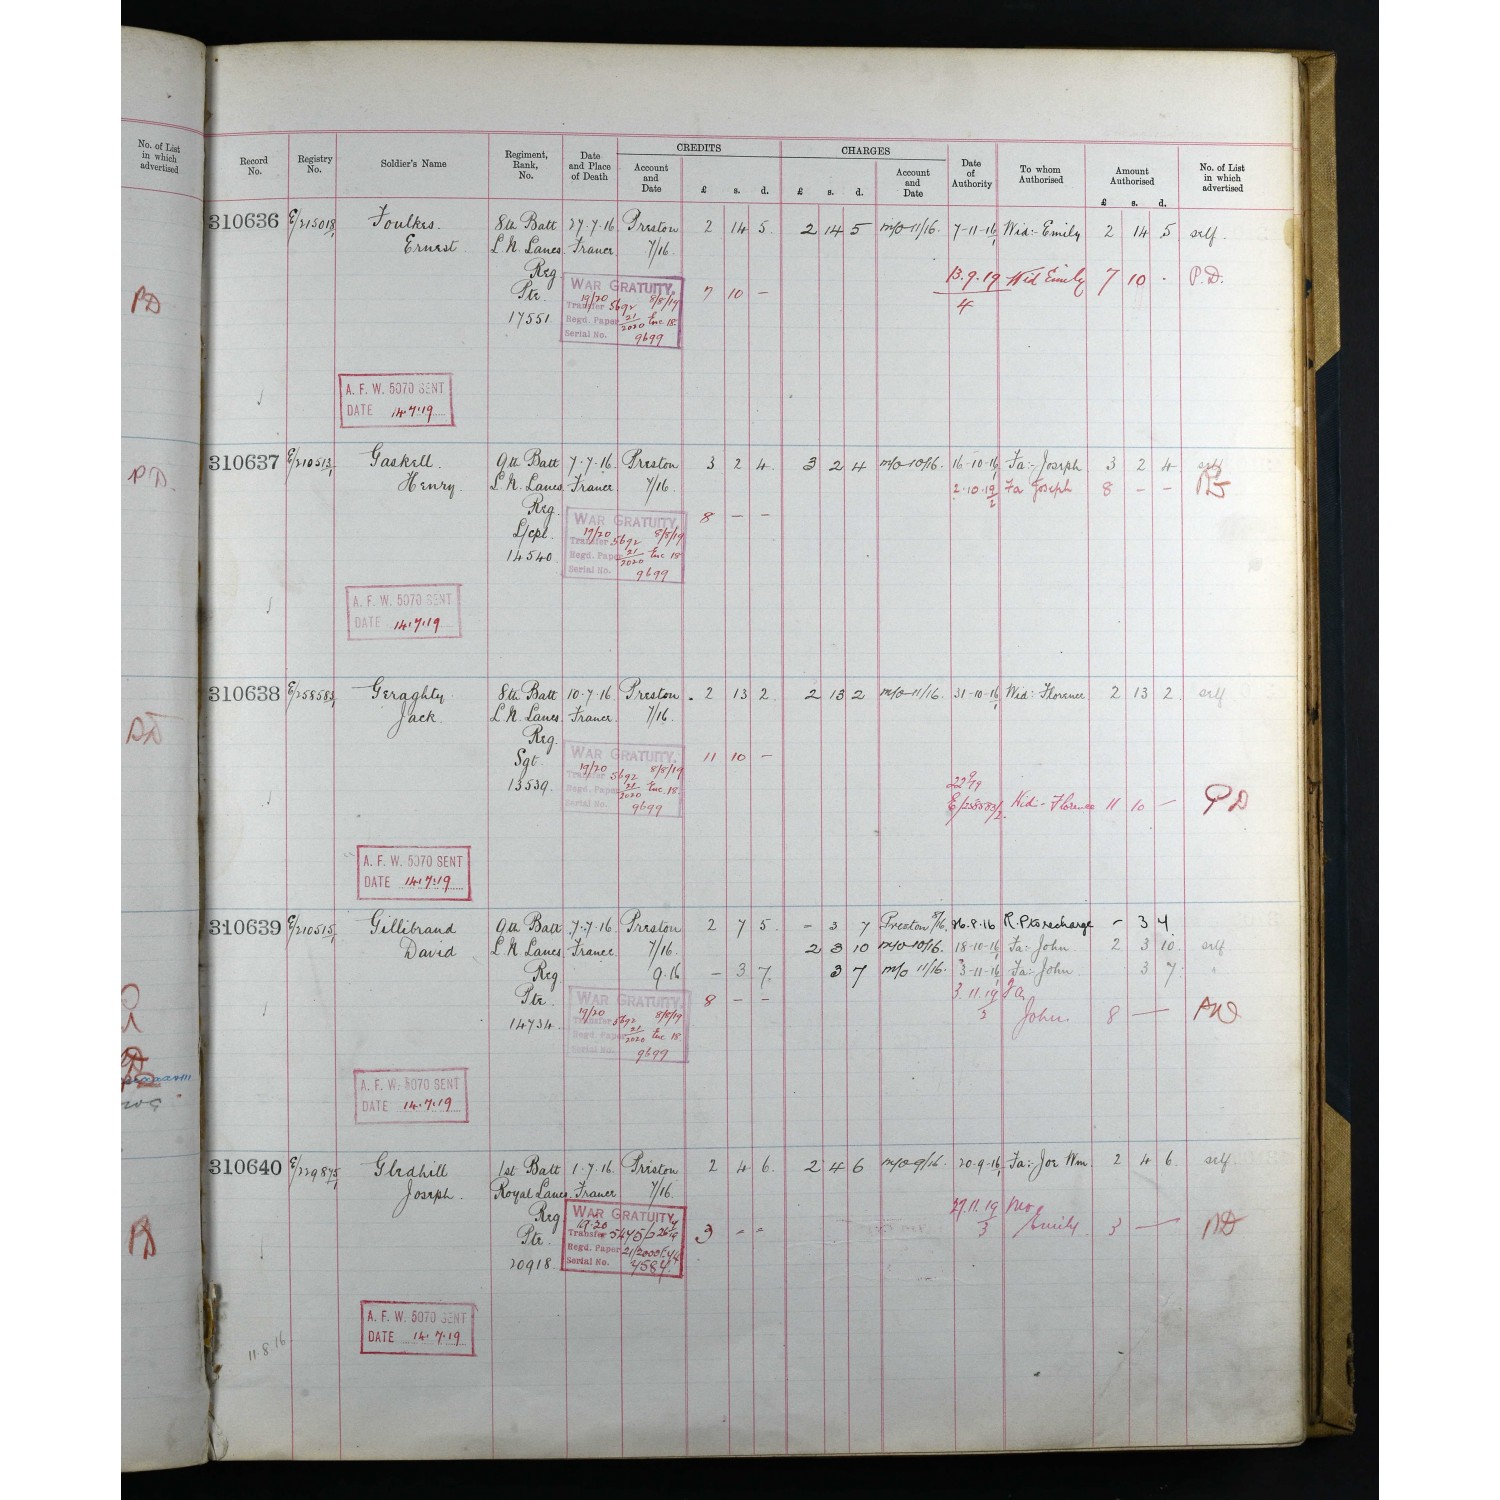 No. of List in which advertised
Record No. Registry No. Soldier's Name Regiment, Rank, No. Date and Place of Death CREDITS Account and Date £ s. d. CHARGES £ s. d. Account and Date Date of Authority To whom Authorised Amount Authorised £ s. d. No. of List in which advertised
310636 E/215018/1 Foulkes. 8th Batt 27-7-16 Preston 2 14 5. 2 14 5 m/o 11/16. 7-11-16/1 Wid:- Emily 2 14 5 self.
Ernest L.N. Lancs. France 7/16.
Reg
PD Pte. WAR GRATUITY. 7 10 — 13.9.19/4 Wid Emily 7 10 . P.D.
19/20 8/8/19
Transfer 5692
17551 Regd. Paper 21/2020 Enc 18.
Serial No. 9699
A. F. W. 5070 SENT
DATE 14.7.19
310637 E/210513/1 Gaskell. 9th Batt 7-7-16. Preston 3 2 4. 3 2 4 m/o 10/16. 16-10-16/1 Fa:- Joseph 3 2 4 self
PD. Henry L.N. Lancs France 7/16. 2.10.19/2 Fa Joseph 8 — —
Reg. WAR GRATUITY. 8 — —
L/cpl. 19/20 8/8/19
Transfer 5692
14540 Regd. Paper 21/2020 Enc 18
Serial No. 9699
A. F. W. 5070 SENT
DATE 14.7.19
310638 E/258583/1 Geraghty. 8th Batt 10-7-16 Preston 2 13 2. 2 13 2 m/o 11/16. 31-10-16/1 Wid: Florence 2 13 2. self
PD Jack. L.N. Lancs. France 7/16.
Reg.
Sgt. WAR GRATUITY. 11 10 —
19/20 8/8/19
Transfer 5692
13539. Regd. Paper 21/2020 Enc. 18. 22 9/19
Serial No. 9699 E/258583/2. Wid:- Florence 11 10 — PD
A. F. W. 5070 SENT
DATE 14.7.19
310639 E/210515/1 Gillibrand 9th Batt 7-7-16. Preston 2 7 5. - 3 7 Preston 8/16. 26.8.16 R.P. to recharge - 3 7.
David L.N. Lancs. France. 7/16. 2 3 10 m/o 10/16. 18-10-16/1 Fa: John 2 3 10. self
Reg. 9.16 — 3 7. 3 7 m/o 11/16. 3-11-16/1 Fa: John. 3 7. "
Pte. WAR GRATUITY. 8 — — 3.11.19/3 Fa,
19/20 8/8/19 John. 8 —
Transfer 5692
14734. Regd. Paper 21/2020 Enc 18.
Serial No. 9699
A. F. W. 5070 SENT
DATE 14.7.19
310640 E/229875/1 Gledhill 1st Batt 1-7-16. Preston 2 4 6. 2 4 6 m/o 9/16. 20-9-16/1 Fa:- Jos Wm. 2 4 6. self
Joseph. Royal Lancs. France 7/16.
PD Reg WAR GRATUITY. 3 — — 27.11.19/3 Mo,
Emily 3 — PD
Pte. 19.20
Transfer
Regd. Paper
20918. Serial No.
A. F. W. 5070 SENT
DATE 14.7.19
11.8.16